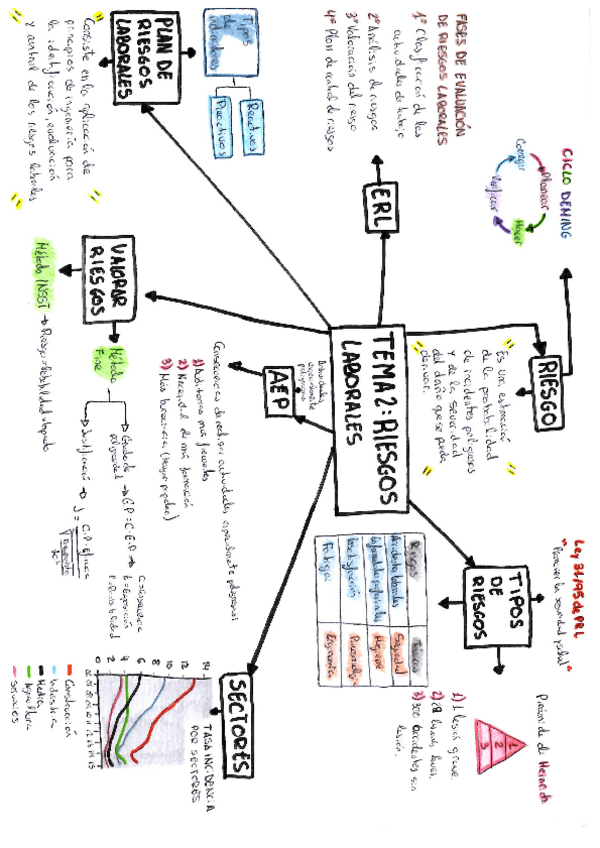 TEMA 2: RIESGOS
LABORALES
CICLO DEMING
Planear
Hacer
Verificar
Corregir
RIESGO
"Es una estimación
de la probabilidad
de incidentes peligrosos
y de la severidad
del daño que se pueda
derivar."
ERL
FASES DE EVALUACIÓN
DE RIESGOS LABORALES
1º Clasificación de las
actividades de trabajo
2º Análisis de riesgos
3º Valoración del riesgo
4º Plan de control de riesgos
PLAN DE
RIESGOS
LABORALES
Tipos
de
indicadores
Reactivos
Proactivos
"Consiste en la aplicación de
principios de ingeniería para
la identificación, evaluación
y control de los riesgos laborales"
VALORAR
RIESGOS
Método INSST
Método
Fine
Grado de
peligrosidad
G.P = C.E.P
C = Consecuencia
E = Exposición
P = Probabilidad
Justificación
AEP
Actividades
especialmente
peligrosas
Consecuencias de realizar actividades especialmente peligrosas
1) Auditorías más frecuentes
2) Necesidad de más formación
3) Más burocracia (mayor papeleo)
TIPOS
DE
RIESGOS
Ley 31/95 de PRL
Pirámide de Heinrich
1
2
3
1) 1 lesión grave.
2) 29 lesiones leves.
3) 300 accidentes sin
lesión.
Riesgos
Técnicas
Accidentes laborales
Seguridad
Enfermedades profesionales
Higiene
Insatisfacción
Psicosociología
Fatiga
Ergonomía
SECTORES
TASA INCIDENCIA
POR SECTORES
14
12
10
8
6
4
2
0
Construcción
Industria
Media
Agricultura
Servicios